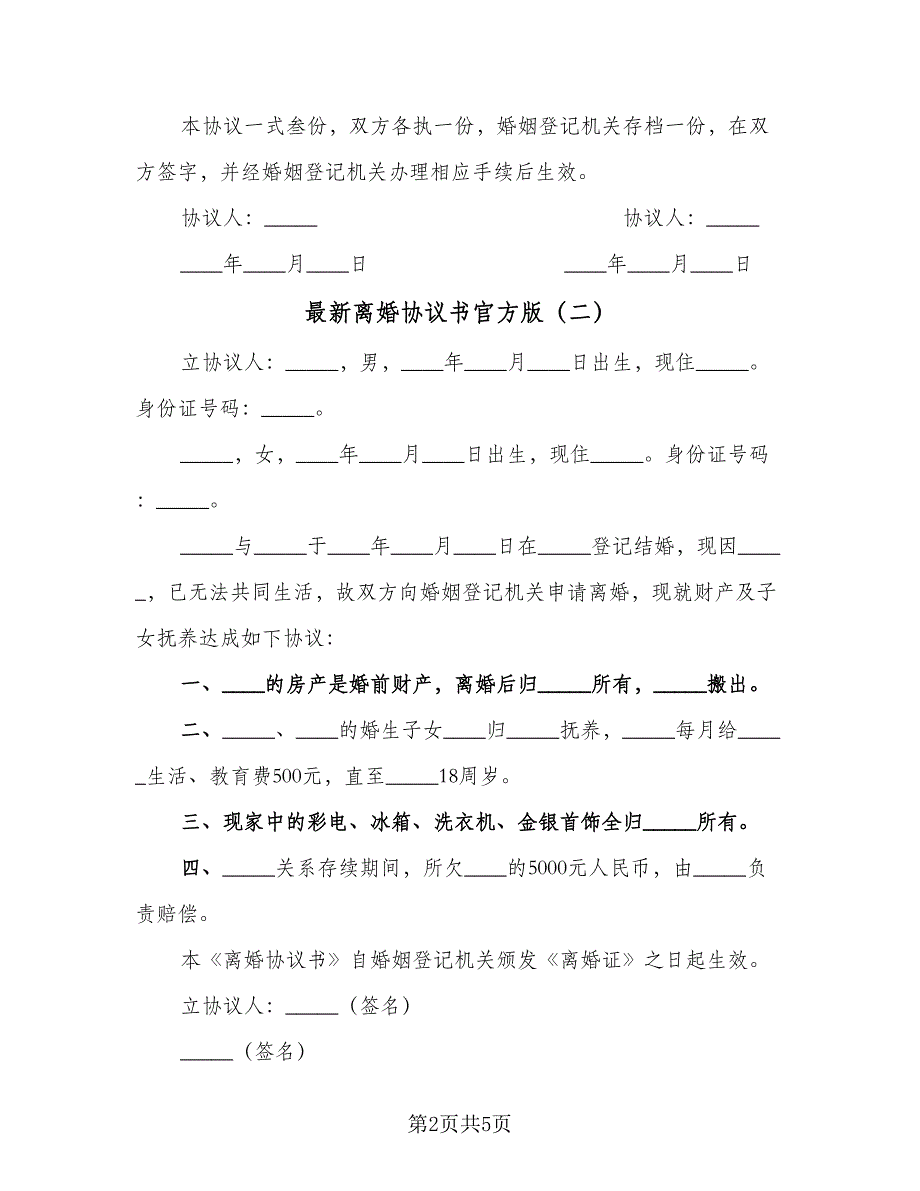 本协议一式叁份，双方各执一份，婚姻登记机关存档一份，在双
方签字，并经婚姻登记机关办理相应手续后生效。
协议人：_____ 协议人：_____
____年____月____日 ____年____月____日
最新离婚协议书官方版（二）
立协议人：_____，男，____年____月____日出生，现住_____。
身份证号码：_____。
_____，女，____年____月____日出生，现住_____。身份证号码
：_____。
_____与_____于____年____月____日在_____登记结婚，现因____
_，已无法共同生活，故双方向婚姻登记机关申请离婚，现就财产及子
女抚养达成如下协议：
一、____的房产是婚前财产，离婚后归_____所有，_____搬出。
二、_____、____的婚生子女____归_____抚养，_____每月给____
_生活、教育费500元，直至_____18周岁。
三、现家中的彩电、冰箱、洗衣机、金银首饰全归_____所有。
四、_____关系存续期间，所欠____的5000元人民币，由_____负
责赔偿。
本《离婚协议书》自婚姻登记机关颁发《离婚证》之日起生效。
立协议人：_____（签名）
_____（签名）
第2页共5页